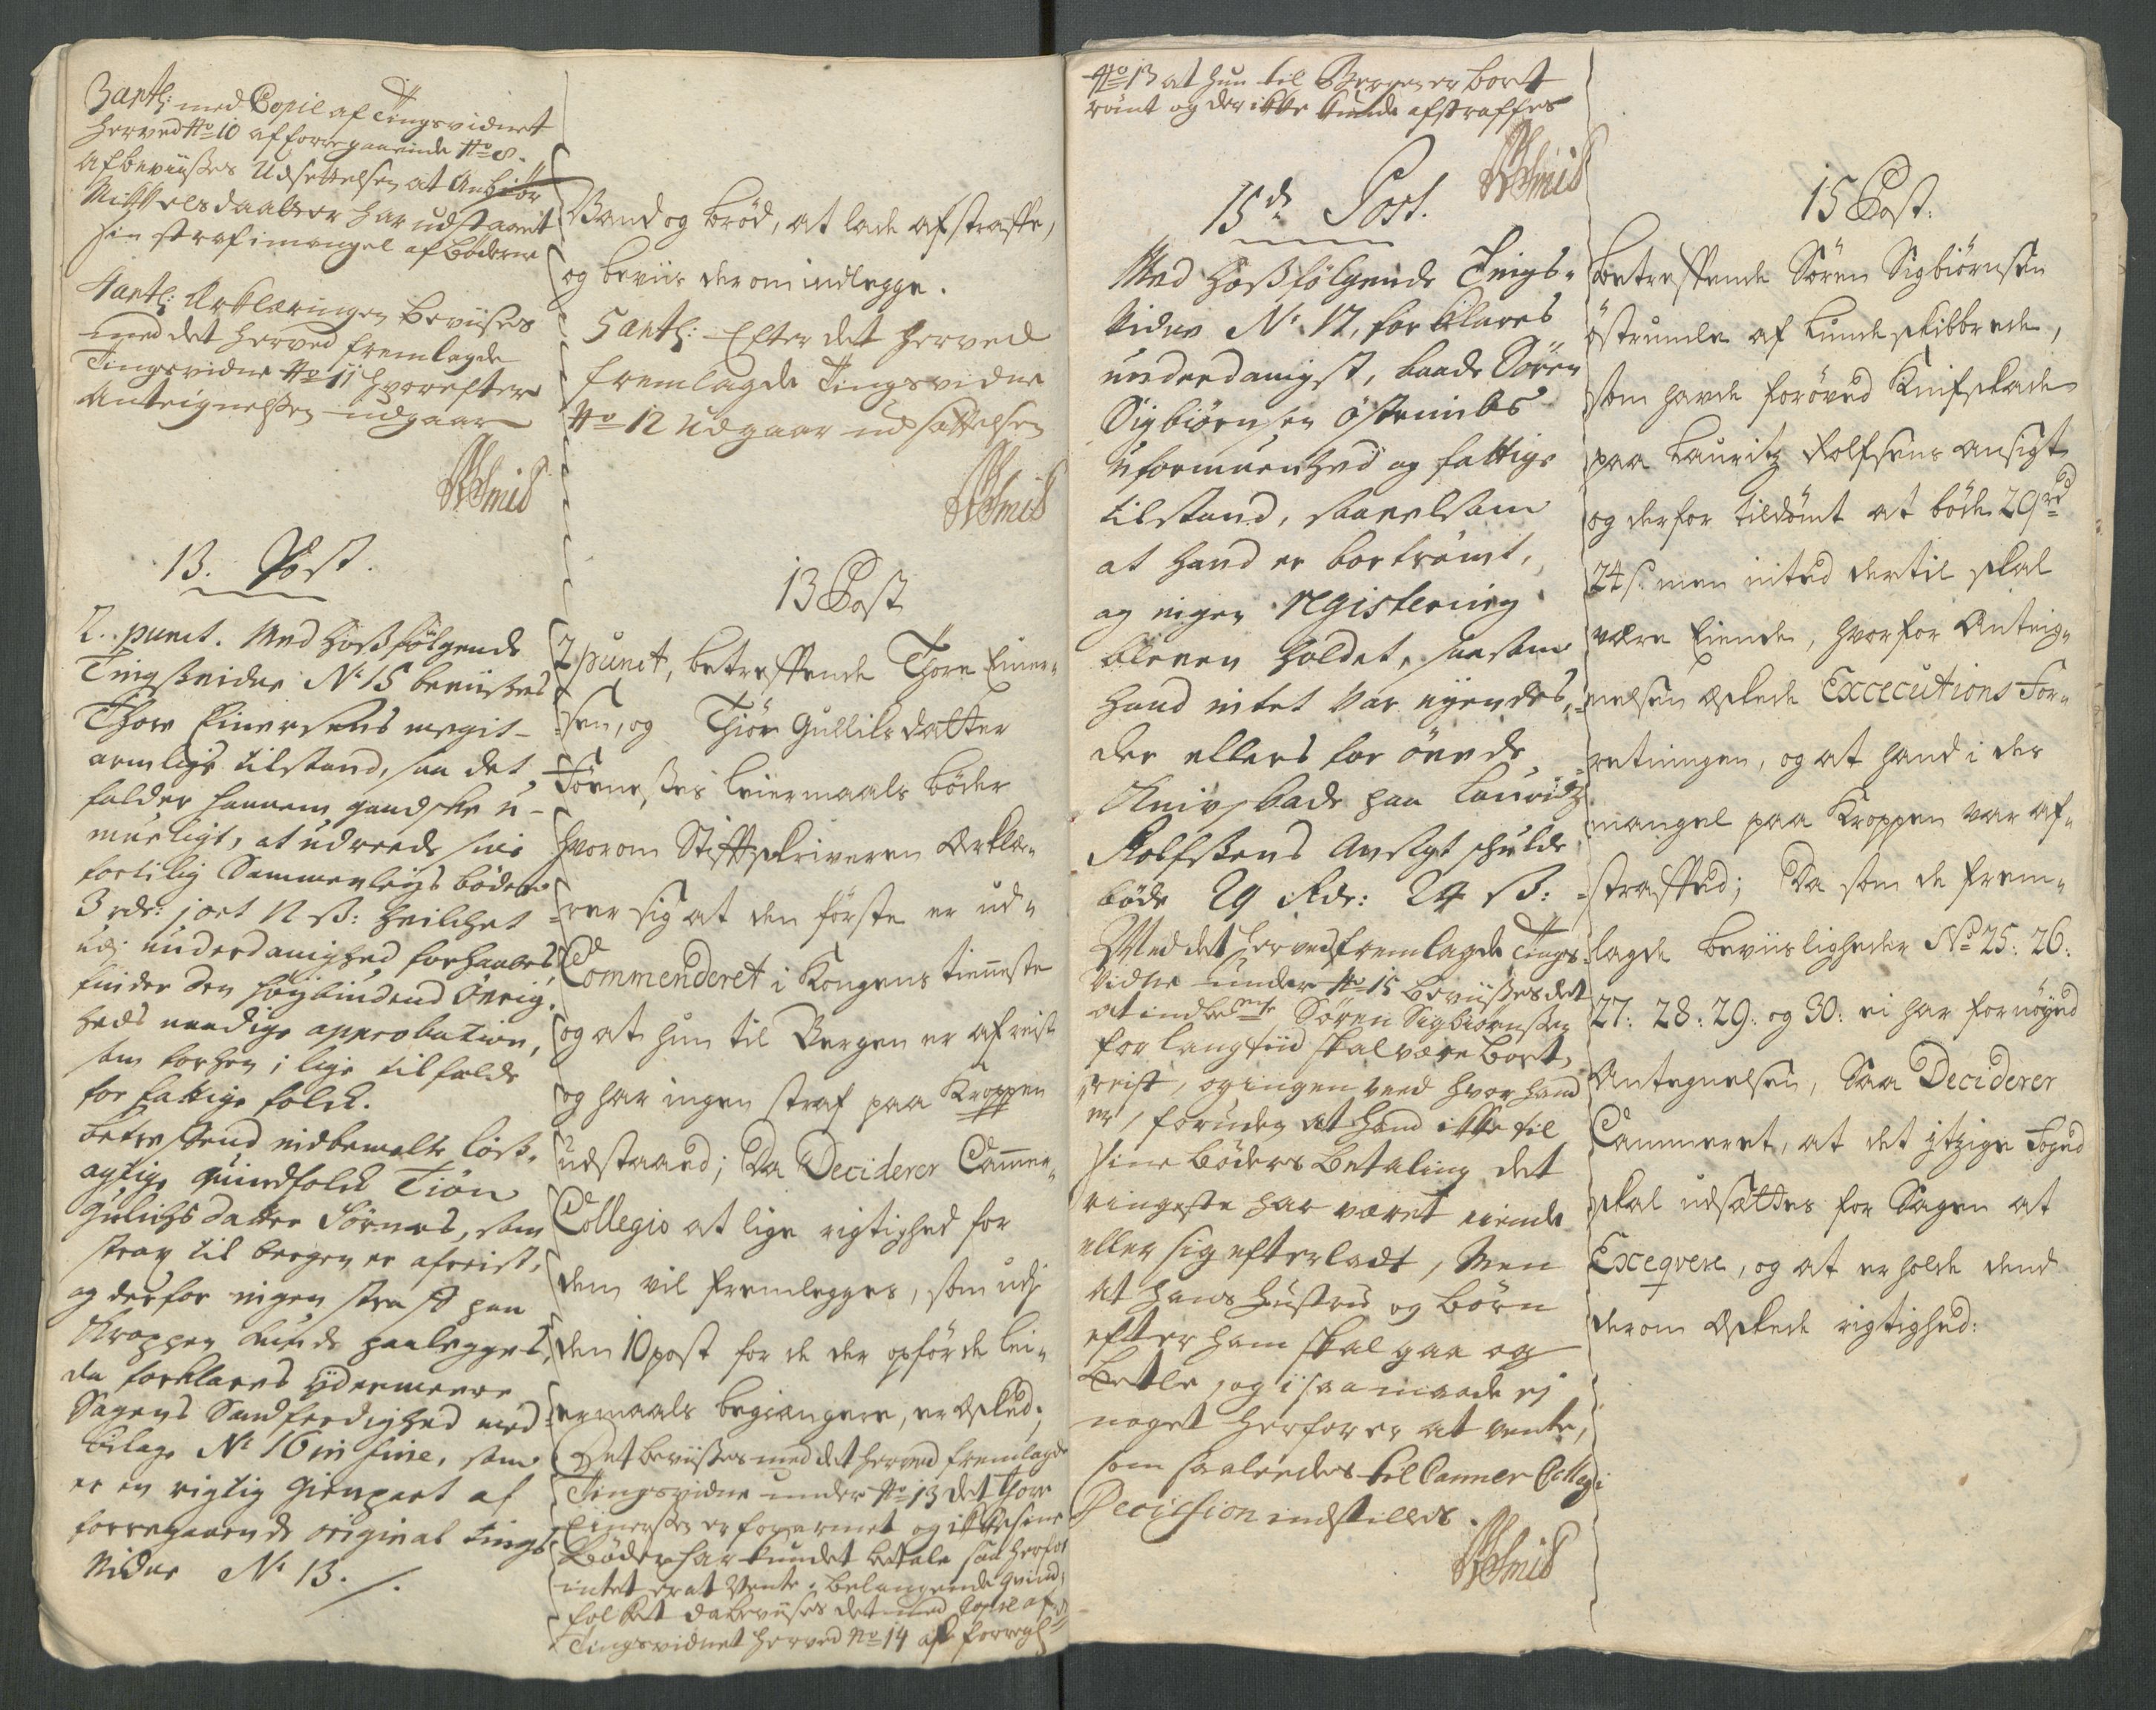 3 antl: med Copie af Tingsvidnet
herved No 10 af forregaaende No 8.
afbeviises Udsettelsen at Anbiör
Mikkelsdaatter har udstaaet
sin straf i mangel af bøderne
4 antl: Erklæringen beviises
med det herved fremlagde
Tingsvidne No 11 hvorefter
Anteignelsen udgaar
Smid
13. Post.
2. punct. Med hoßfölgende
Tingsvidne No 15 beviises
Thore Einersens megit
armelige tilstand, saa det
falder hannem gandske u-
mueligt, at udreede sine
fortilig Sammenleys bøder
3 rdr: 1 ort 12 ß: hvilchet
udj underdanighed forhaabes
finder den høybiudend Øvrig-
heds naadige approbation,
som forhen i lige tilfælde
for fattige folch.
betreffend vidbemelte løß-
agtige quindfolch Tiön
Gulichs datter Förnes, som
strax til bergen er afreist,
og derfor ingen straff paa
Kroppen kunde paalegges,
da forklares ydermeere
Sagens Sandferdighed med
bilage No 16 in fine, som
er en rigtig Gienpart af
forregaaende original tings-
vidne No 13. /.
Vand og brød, at lade afstraffe,
og beviis derom indlegge.
5 antl: Efter det herved
fremlagde Tingsvidne
No 12 Udgaar udsættelsen
Smid
13 Post
2 punct, betreffende Thore Einer-
sen, og Thiör Gulliksdatter
Förneßes leiermaals bøder
hvorom Stifftskriveren Erklæ-
rer sig at den første er ud-
Commenderet i Kongens tieneste
og at hun til Bergen er afreist
og har ingen straf paa Kroppen
udstaaed; Da Deciderer Cammer-
Collegio at lige rigtighed for
dem vil fremlegges, som udj
den 10 post for de der opförde lei-
ermaals begiængere, er æsked.
Det beviises med det herved fremlagde
Tingsvidne under No 13 det Thore
Einersen er forarmet og ikke sine
Bøder har kundet betale saa herfor
intet er at vente. belangende qvind-
folket da beviises det med Copie af
Tingsvidnet herved No 14 af forregl
No 13 at hun til Bergen er bort
römt og der ikke kunde afstraffes
Smid
15de Post.
Med Hoßfölgende Tings-
vidne No 17, forklares
underdanigst, baade Sören
Sigbiörnsen Östrimbs
uformuenhed og fattige
tilstand, saavelsom
at hand er bortrömt,
og ingen registering
bleven holdet, saasom
hand intet var eyendes,
der ellers for övede
Knivskade paa Lauridtz
Rolfsens Ansigt skulde
bøde 29 Rdr: 24 ß:
Med det herved fremlagde Tings-
vidne under No 15 beviises det
at indbemte Søren Sigbiørnsen
for lang tiid skal være bort,
reist, og ingen veed hvor hand
er, foruden at hand ikke til
sine bøders betaling det
ringeste har været eiende
eller sig efterladt, Men
at hans hustru og børn
efter ham skal gaa og
betle, og i saa maade ej
noget herfor er at vente,
som saaledes til Cammer Collegi
Decission indstilles.
Smid
15 Post.
Betreffende Sören Sigbiörnsen
östrumle af Lunde skibbrede,
som havde forøved Knifskade
paa Lauritz Rolfsens ansigt
og derfor tildømt at bøde 29 rd
24 s. men inted dertil skal
være Eiende, hvorfor Anteig-
nelsen Eskede Excecutions For-
retningen, og at hand i des
mangel paa Kroppen var af-
straffed; Da som de frem-
lagde beviisligheder No 25. 26.
27. 28. 29. og 30. ei har fornøyed
Antegnelsen, Saa Deciderer
Cammeret, at det itzige Foged
skal udsættes for Sagen at
Exeqvere, og at erholde dend
derom Eskede rigtighed.